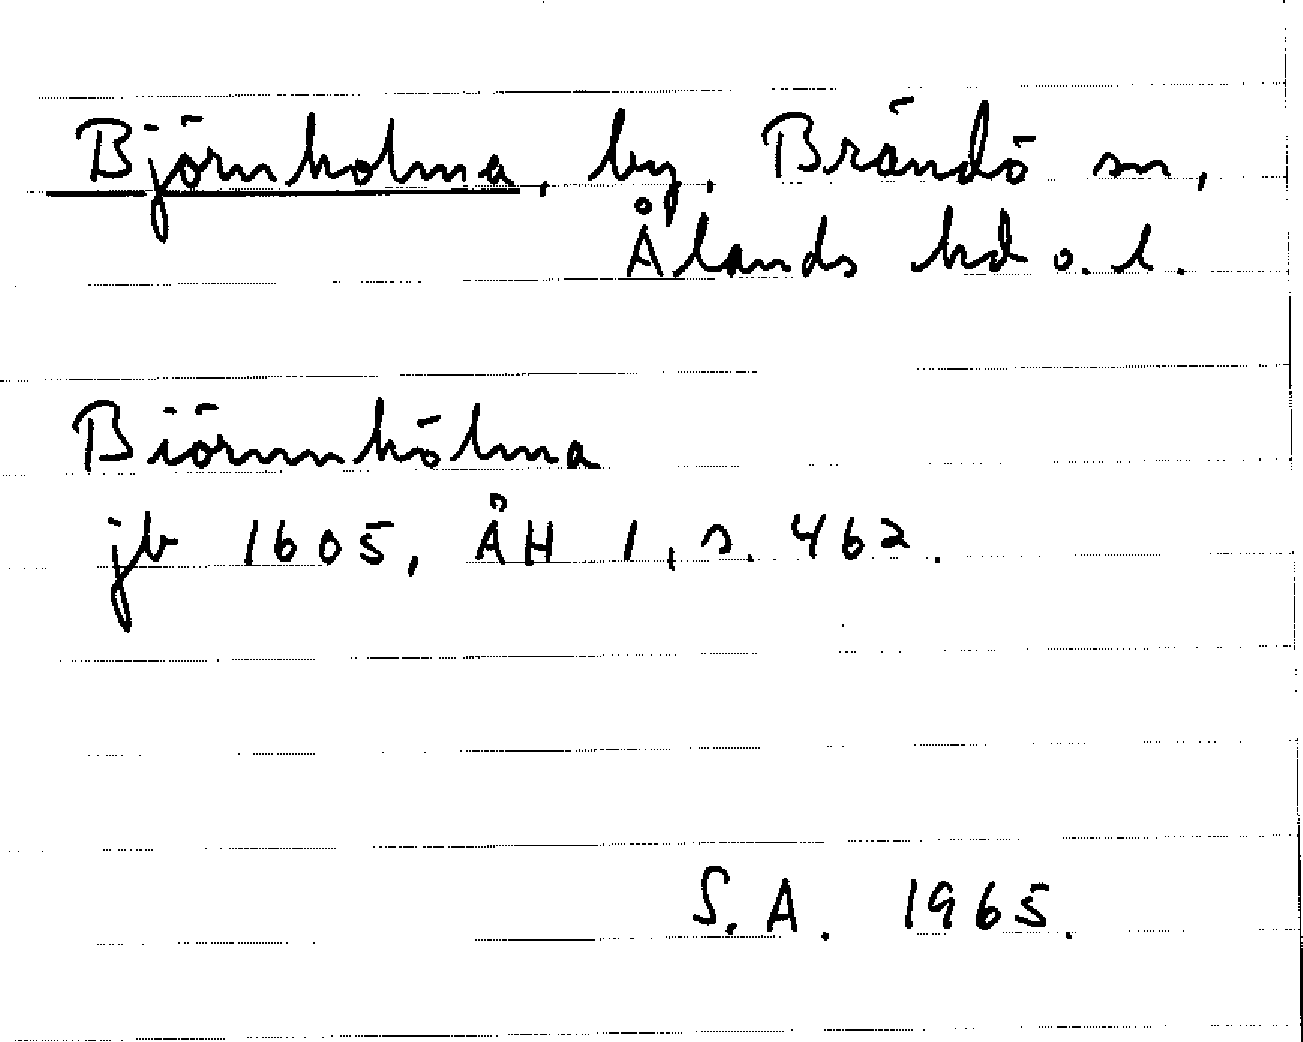 Björnholma, by, Brändö sn,
Ålands hd o. l.
Biörnnhölma
jb 1605, ÅH 1, s. 462.
S. A. 1965.